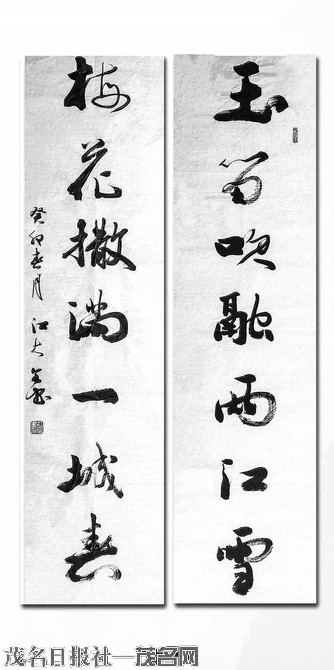 玉笛吹融两江雪
梅花撒满一城春
癸卯春月 江大
茂名日报社—茂名网